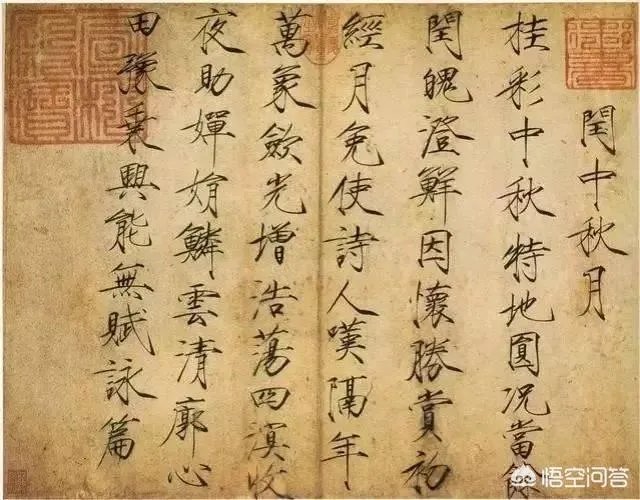 閏中秋月
桂彩中秋特地圓况當餘
閏魄澄鮮因懷勝賞初
經月免使詩人嘆隔年
萬象歛光增浩蕩四溟收
夜助嬋娟鱗雲清廓心
田豫乗興能無賦詠篇
悟空问答